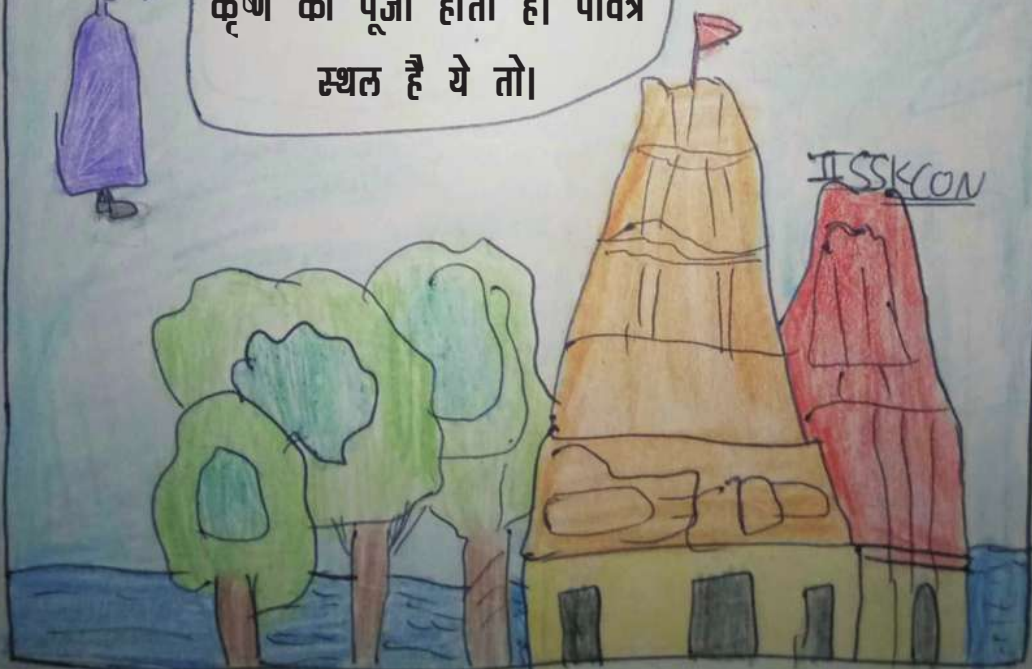 कृष्ण की पूजा होती है। पवित्र
स्थल है ये तो।
IISSKCON